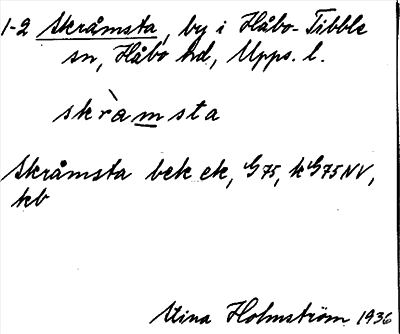 1-2 Skråmsta, by i Håbo-Tibble
sn, Håbo hd, Upps. l.
skràmsta
Skråmsta bek ek, G75, kG75NV,
kb
Stina Holmström 1936